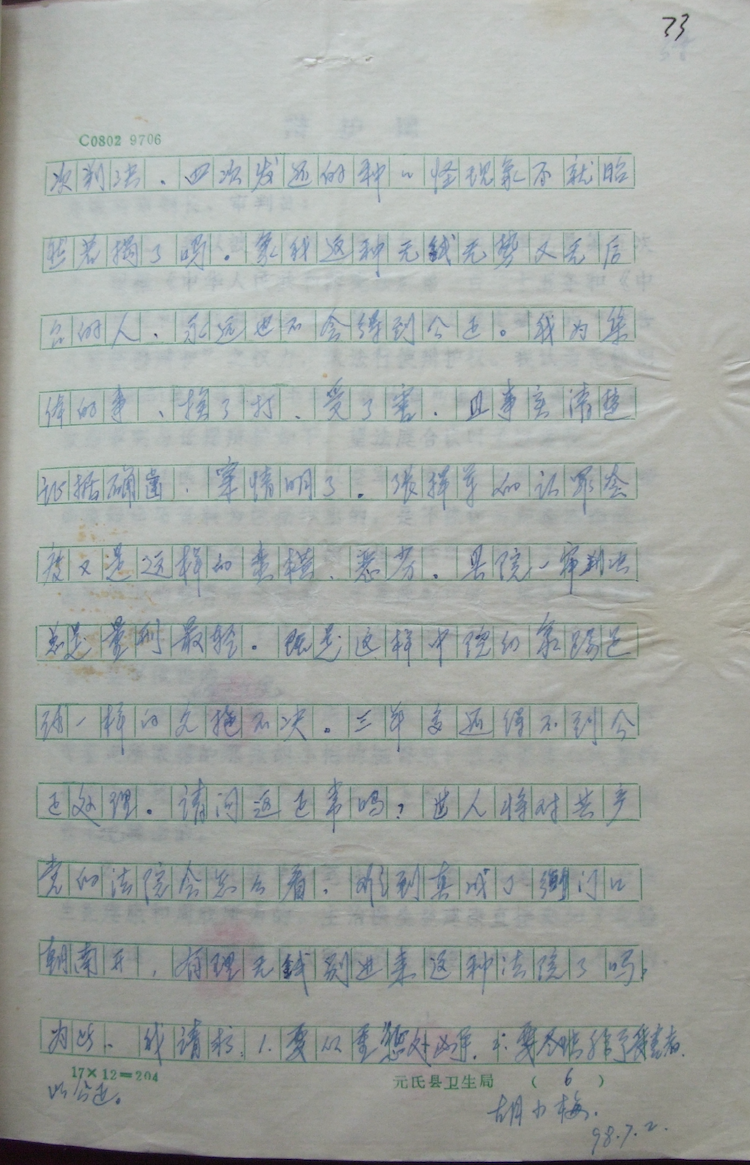 33
C0802 9706
次判决、四次发还的种 怪现象不就昭
然若揭了吗。象我这种无钱无势又无后
台的人、永远也不会得到公正。我为集
体的事、挨了打、受了害、且事实清楚
证据确凿、案情明了。张 的认罪态
度又是这样的 横、恶劣。县院一审判决
总是量刑最轻。既是这样中院 象踢足
球一样的久拖不决。三年多还得不到公
正处理。请问这正常吗？世人将对共产
党的法院会怎么看、难到真成了衙门口
朝南开，有理无钱别进来这种法院了吗！
为此、我请求、1.要从重惩处凶手。2:要 受害者
以公正。
17×12=204
元氏县卫生局 （6）
胡 梅.
98.7.2.